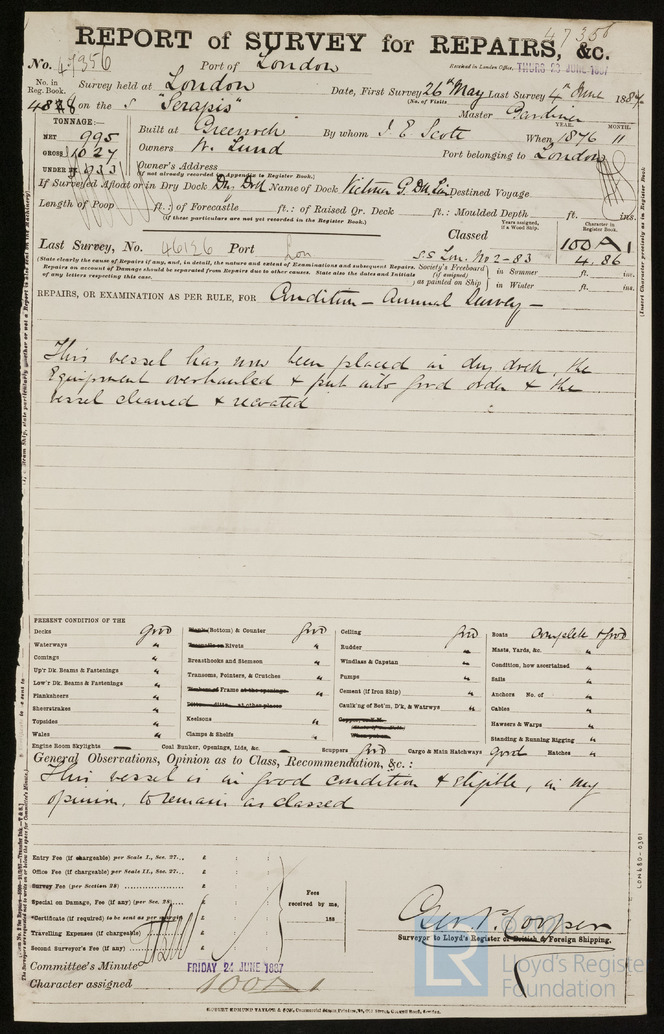 47356
REPORT of SURVEY for REPAIRS, &c.
No. 47356 Port of London Received in London Office, THURS 23 JUNE 1887
No. in Reg. Book. Survey held at London Date, First Survey 26th May Last Survey 4th June 1887
(No. of Visits
on the S "Serapis" Master Gardiner
TONNAGE:— YEAR. MONTH.
NET 995 Built at Greenock By whom J E Scott When 1876 11
GROSS 1027 Owners W. Lund Port belonging to London
UNDER DK 933 Owner's Address
(If not already recorded in Appendix to Register Book.)
If Surveyed Afloat or in Dry Dock Dry Dock Name of Dock Destined Voyage
Length of Poop ft.: of Forecastle ft.: of Raised Qr. Deck ft.: Moulded Depth ft. ins.
(If these particulars are not yet recorded in the Register Book.)
Years assigned, if a Wood Ship.
Character in Register Book.
Classed 100A1
Last Survey, No. 46126 Port Lon S.S Lon. No 2-83 4.86
(State clearly the cause of Repairs if any, and, in detail, the nature and extent of Examinations and subsequent Repairs.
Repairs on account of Damage should be separated from Repairs due to other causes. State also the dates and initials
of any letters respecting this case.
Society's Freeboard (if assigned) as painted on Ship in Summer ft. ins.
in Winter ft. ins.
REPAIRS, OR EXAMINATION AS PER RULE, FOR Condition – Annual Survey –
This vessel has now been placed in dry dock, the
Equipment overhauled & put into good order & the
vessel cleaned & recoated
PRESENT CONDITION OF THE
Decks Good
Waterways "
Comings "
Up'r Dk. Beams & Fastenings "
Low'r Dk. Beams & Fastenings "
Planksheers "
Sheerstrakes "
Topsides "
Wales "
Engine Room Skylights —
(Bottom) & Counter Good
Rivets "
Breasthooks and Stemson "
Transoms, Pointers, & Crutches "
Frame "
Keelsons "
Clamps & Shelfs "
Coal Bunker, Openings, Lids, &c. —
Ceiling Good
Rudder "
Windlass & Capstan "
Pumps "
Cement (if Iron Ship) "
Caulk'ng of Bot'm, D'k, & Watrwys "
Scuppers Good
Cargo & Main Hatchways Good
Boats Complete & Good
Masts, Yards, &c. "
Condition, how ascertained "
Sails "
Anchors No. of "
Cables "
Hawsers & Warps "
Standing & Running Rigging "
Hatches "
General Observations, Opinion as to Class, Recommendation, &c. :
This vessel is in good condition & Eligible, in my
opinion, to remain as classed
Entry Fee (if chargeable) per Scale I., Sec. 27... £ : :
Office Fee (if chargeable) per Scale II., Sec. 27... £ : :
Survey Fee (per Section 28) £ : :
Special on Damage, Fee (if any) (per Sec. 28) £ : :
*Certificate (if required) to be sent as per margin £ : :
Travelling Expenses (if chargeable) £ : :
Second Surveyor's Fee (if any) £ : :
Fees received by me,
188
Surveyor to Lloyd's Register of British & Foreign Shipping.
Committee's Minute FRIDAY 24 JUNE 1887
Character assigned 100A1
LR
Lloyd's Register
Foundation